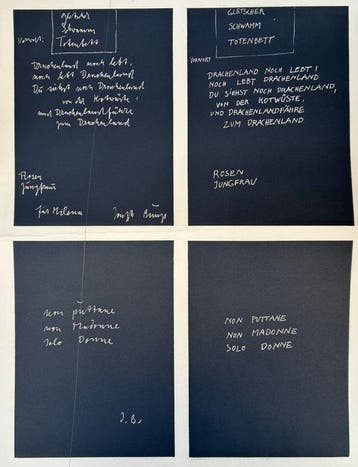 Gletscher
Schwamm
Totenbett
Drachenland noch lebt,
noch lebt Drachenland
Du siehst noch Drachenland
von der Kotwüste,
und Drachenlandfähre
zum Drachenland
Rosen
Jungfrau
für Milena Joseph Beuys
GLETSCHER
SCHWAMM
TOTENBETT
DRACHENLAND NOCH LEBT!
NOCH LEBT DRACHENLAND
DU SIEHST NOCH DRACHENLAND,
VON DER KOTWÜSTE,
UND DRACHENLANDFÄHRE
ZUM DRACHENLAND
ROSEN
JUNGFRAU
non puttane
non Madonne
solo Donne
J. B.
NON PUTTANE
NON MADONNE
SOLO DONNE